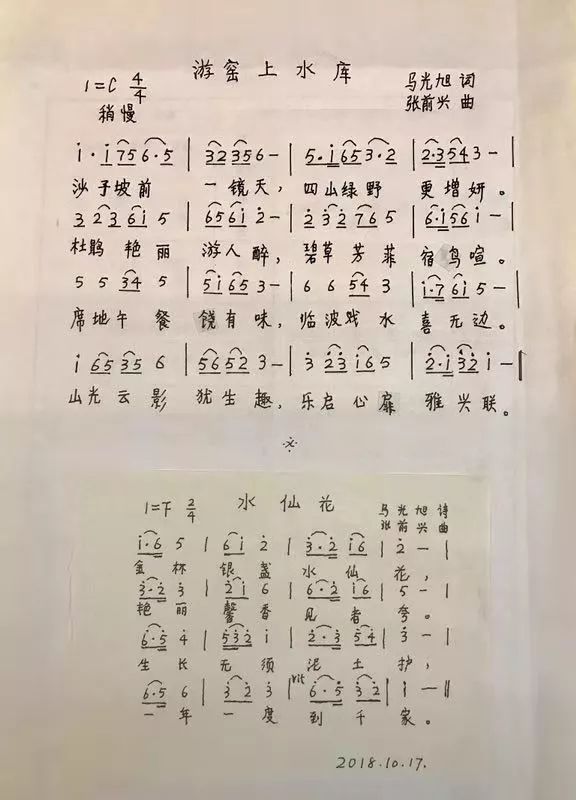 游窑上水库
1=C 4/4
马光旭 词
稍慢
张前兴 曲
i·i 7 5 6·5 | 3 2 3 5 6 - | 5·i 6 5 3·2 | 2·3 5 4 3 - |
沙子坡前 一镜天，四山绿野 更增妍。
3 2 3 6 i 5 | 6 5 6 i 2 - | 2 3 2 7 6 5 | 6·i 5 6 i - |
杜鹃艳丽 游人醉，碧草芳菲 宿鸟喧。
5 5 3 4 5 | 5 i 6 5 3 - | 6 6 5 4 3 | i·7 6 i 5 - |
席地午餐 饶有味，临波戏水 喜无边。
i 6 5 3 5 6 | 5 6 5 2 3 - | 3 2 3 i 6 5 | 2·i 3 2 i - ‖
山光云影 犹生趣，乐启心扉 雅兴联。
1=F 2/4
水仙花
马光旭 诗
张前兴 曲
i·6 5 | 6 i 2 | 3·2 i 6 | 2 - |
金杯 银盏 水仙 花，
3·2 3 | 2 i 6 | 6·2 i 6 | 5 - |
艳丽 馨香 见者 夸。
6·5 4 | 5 3 2 i | 2·3 5 4 | 3 - |
生长 无须 泥土 护，
6·5 6 | 3 2 3 | rit 6·5 3 2 | i - ‖
一年 一度 到千 家。
2018.10.17.